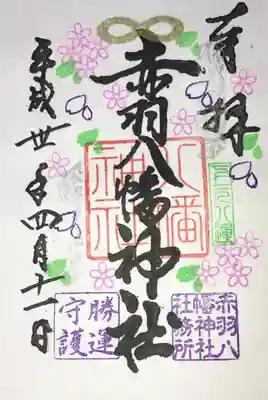 奉拝
赤羽八幡神社
八幡
神社
平成卅年四月十一日
赤羽八
幡神社
社務所
勝運
守護